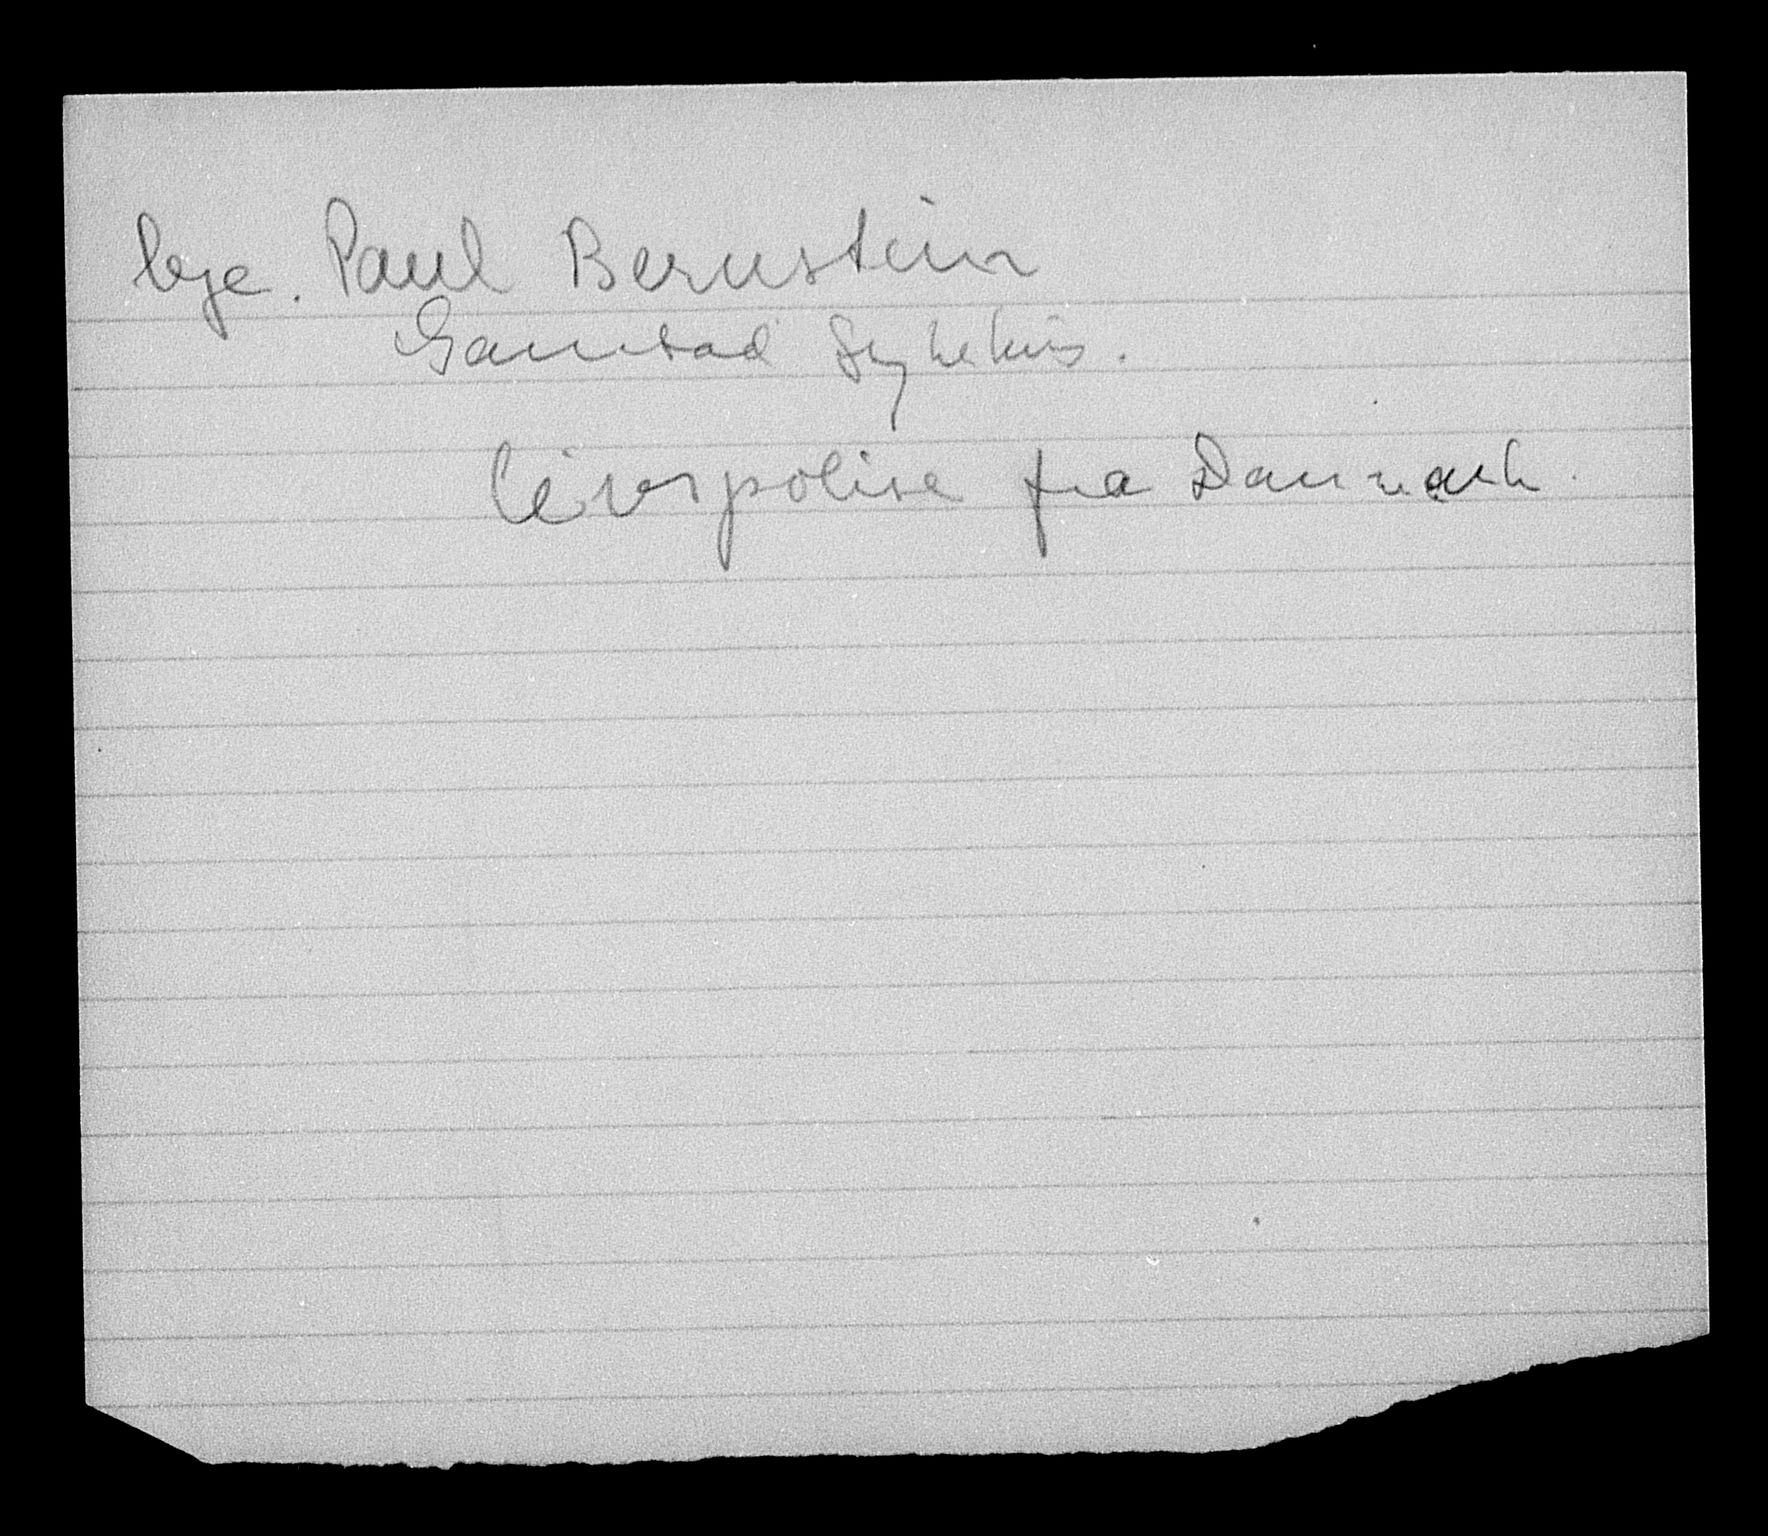 lege. Paul Bernstein
Gaustad Sykehus.
Livspolise fra Danmark.